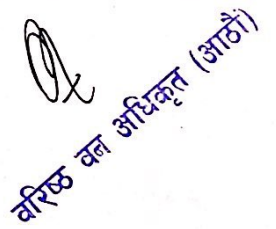 वरिष्ठ वन अधिकृत (आठौं)